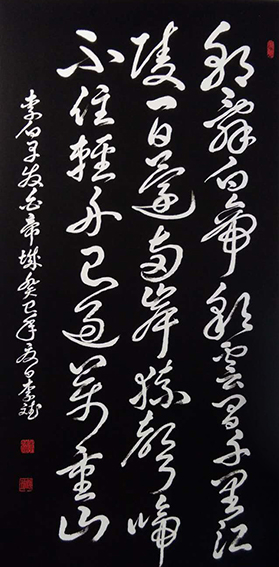 朝辭白帝彩雲間千里江
陵一日還兩岸猿聲啼
不住輕舟已過萬重山
李白早發白帝城癸巳年夏日李斌